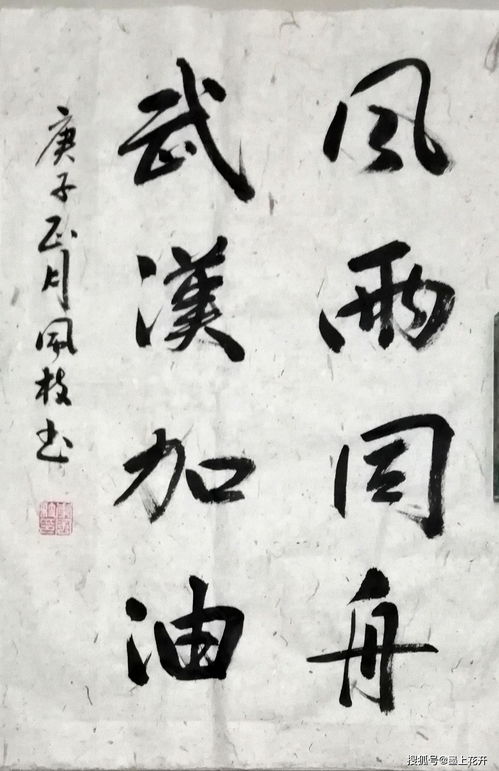 风雨同舟
武漢加油
庚子正月風枝书
搜狐号@墨上花开